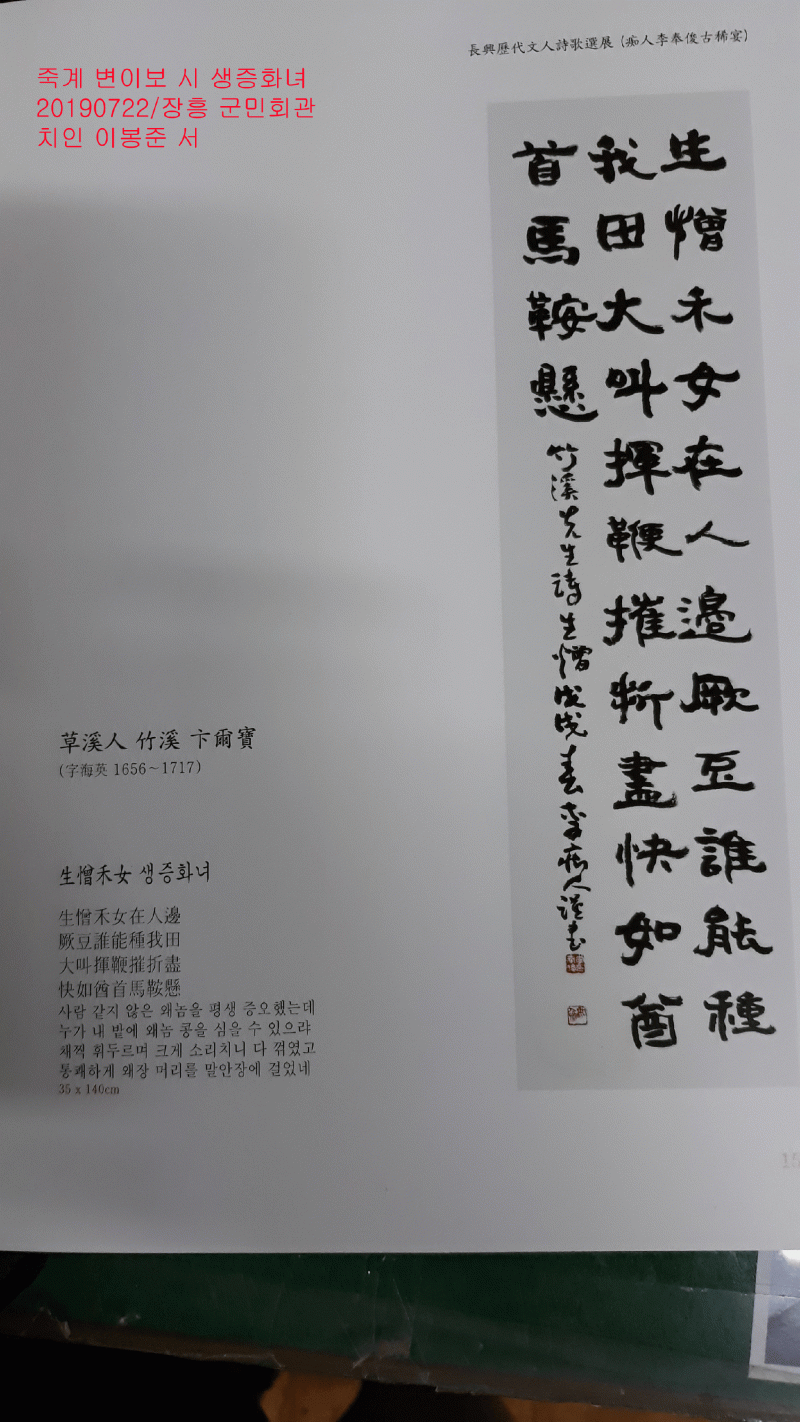 長興歷代文人詩歌選展 (痴人李奉俊古稀宴)
죽계 변이보 시 생증화녀
20190722/장흥 군민회관
치인 이봉준 서
生憎禾女在人邊厥豆誰能種
我田大叫揮鞭摧折盡快如酋
首馬鞍懸
竹溪先生詩生憎戊戌春李痴人謹書
草溪人 竹溪 卞爾寶
(字海英 1656~1717)
生憎禾女 생증화녀
生憎禾女在人邊
厥豆誰能種我田
大叫揮鞭摧折盡
快如酋首馬鞍懸
사람 같지 않은 왜놈을 평생 증오했는데
누가 내 밭에 왜놈 콩을 심을 수 있으랴
채찍 휘두르며 크게 소리치니 다 꺾였고
통쾌하게 왜장 머리를 말안장에 걸었네
35 x 140cm